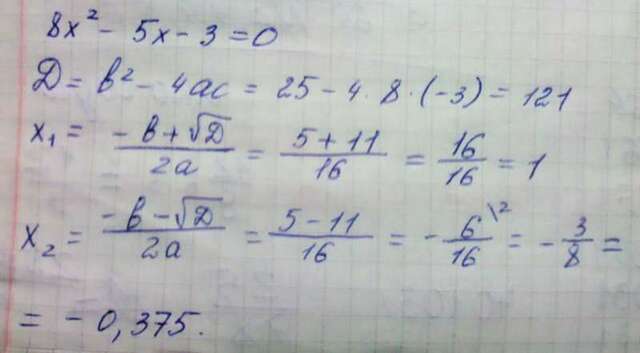 8x² - 5x - 3 = 0
Д = b² - 4ac = 25 - 4 · 8 · (-3) = 121
x₁ = (-b + √Д)/(2a) = (5 + 11)/16 = 16/16 = 1
x₂ = (-b - √Д)/(2a) = (5 - 11)/16 = - 6\²/16 = - 3/8 =
= - 0,375.